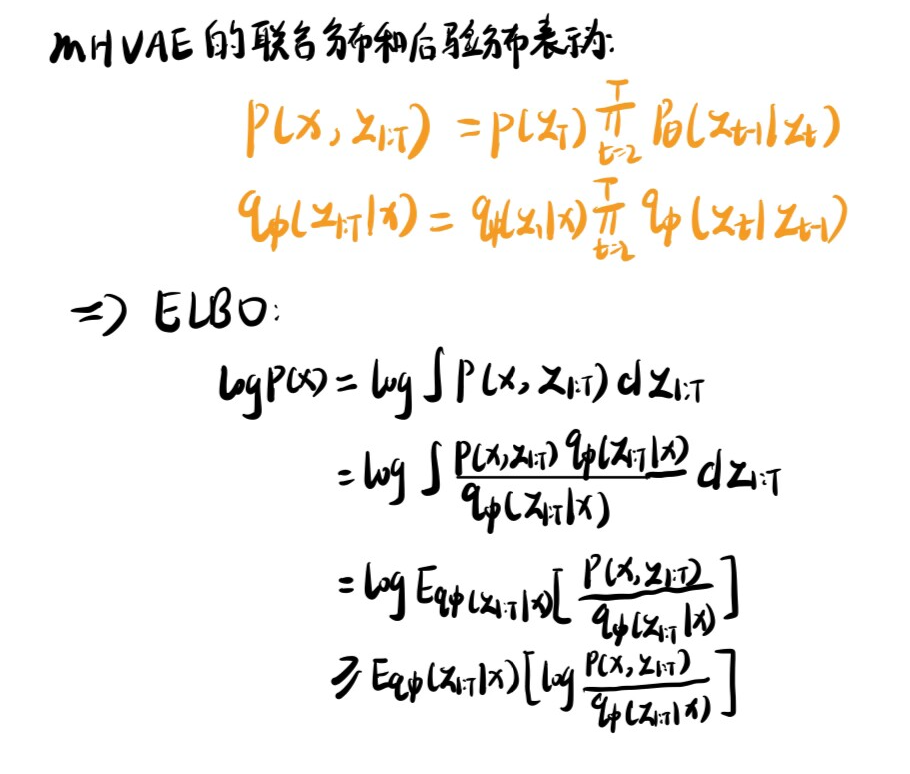 MHVAE的联合分布和后验分布表示为:
P(x, z₁:T) = p(z_T) ∏_{t=2}^{T} Pθ(z_{t-1}|z_t)
qφ(z₁:T|x) = qφ(z₁|x) ∏_{t=2}^{T} qφ(z_t|z_{t-1})
=> ELBO:
log P(x) = log ∫ P(x, z₁:T) dz₁:T
= log ∫ \frac{P(x, z₁:T) qφ(z₁:T|x)}{qφ(z₁:T|x)} dz₁:T
= log E_{qφ(z₁:T|x)} [ \frac{P(x, z₁:T)}{qφ(z₁:T|x)} ]
≥ E_{qφ(z₁:T|x)} [ log \frac{P(x, z₁:T)}{qφ(z₁:T|x)} ]